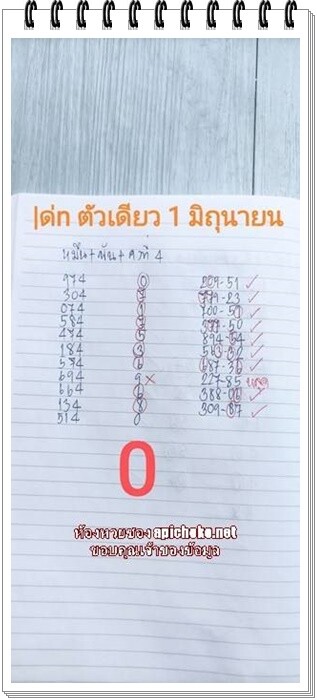 เด่น ตัวเดียว 1 มิถุนายน
หมื่น+พัน+คงที่ 4
974 0 209-51 ✓
304 7 779-23 ✓
074 1 100-51 ✓
584 7 377-50 ✓
434 5 894-54 ✓
184 3 563-30 ✓
574 6 687-36 ✓
694 9 × 227-85
664 6 388-06 ✓
134 8 309-87 ✓
514 0
0
ห้องหวยซอง apichoke.net
ขอบคุณเจ้าของข้อมูล